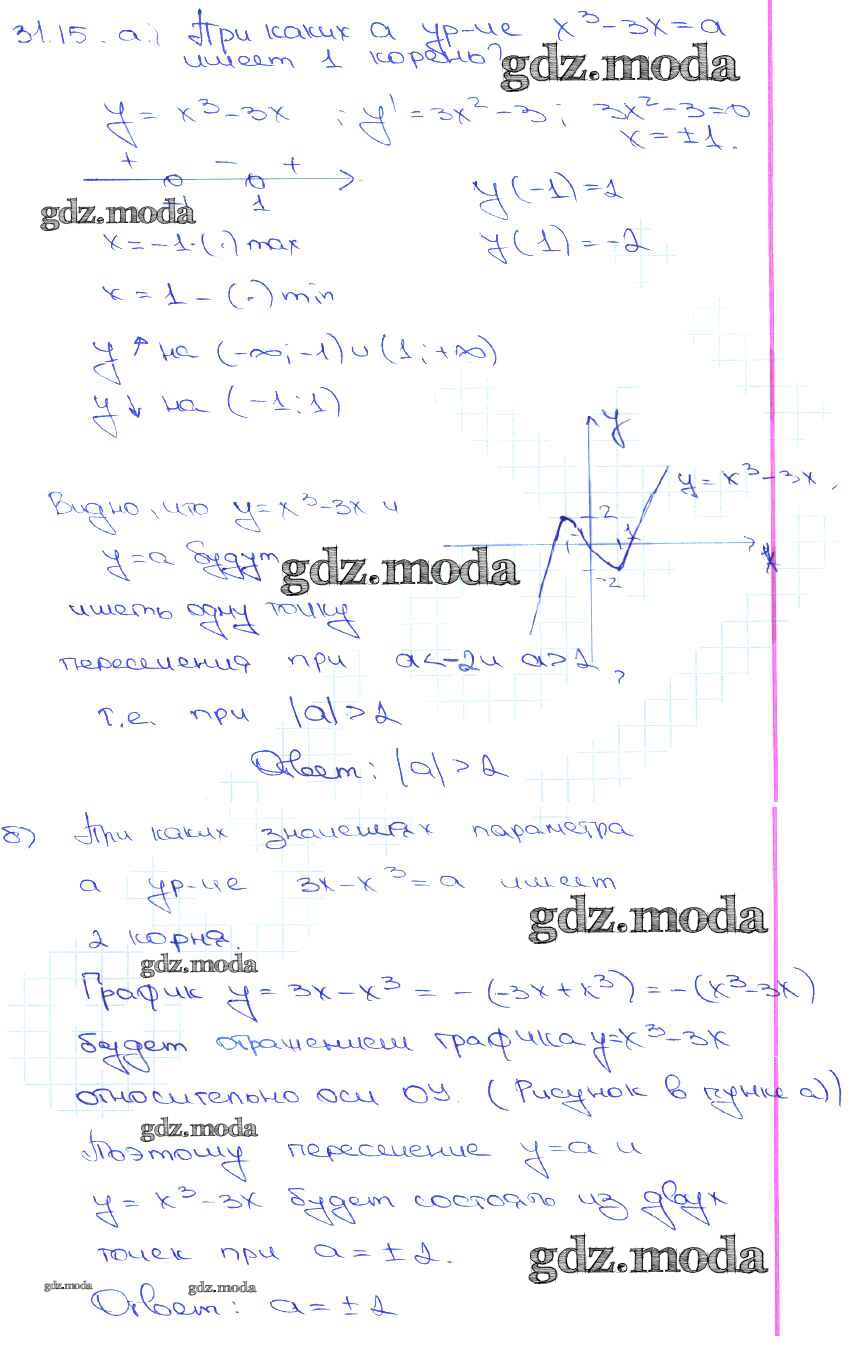 31.15. а.) При каких а ур-ие x³-3x=a
имеет 1 корень?
gdz.moda
y = x³-3x ; y' = 3x²-3; 3x²-3=0
x = ±1.
+ - +
-1 1
y(-1)=2
gdz.moda
x=-1-(·) max
y(1)=-2
x = 1 - (·) min
y ↑ на (-∞;-1)∪(1;+∞)
y ↓ на (-1;1)
y
y = x³-3x,
2
-1 1
x
-2
Видно, что y=x³-3x и
y=a будут
gdz.moda
иметь одну точку
пересечения при a<-2 и a>2,
т.е. при |a|>2
Ответ: |a|>2
б) При каких значениях параметра
а ур-ие 3x-x³=a имеет
gdz.moda
2 корня.
gdz.moda
График y = 3x-x³ = -(-3x+x³) = -(x³-3x)
будет отражением графика y=x³-3x
относительно оси ОУ. (Рисунок в пунке а))
gdz.moda
Поэтому пересечение y=a и
y = x³-3x будет состоять из двух
точек при a=±2.
gdz.moda
gdz.moda
gdz.moda
Ответ: a=±2